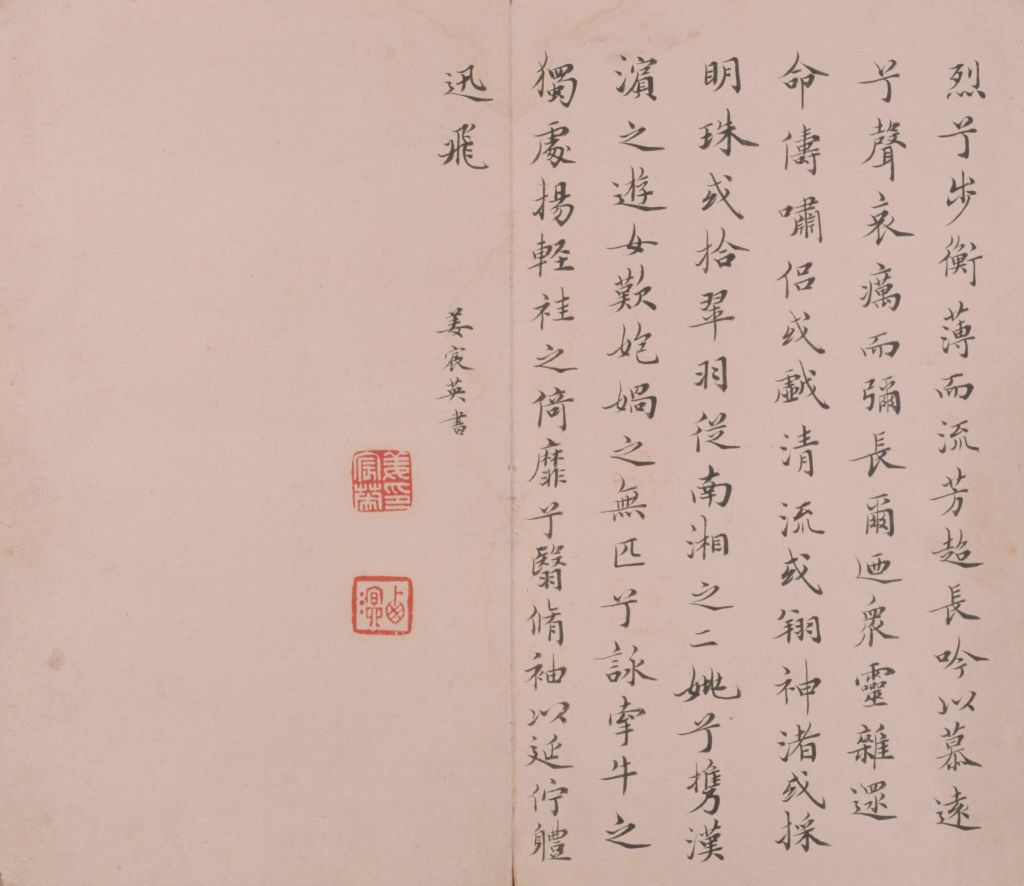 烈兮步衡薄而流芳超長吟以慕遠
兮聲哀癘而彌長爾迺衆靈雜遝
命儔嘯侶或戲清流或翔神渚或採
明珠或拾翠羽從南湘之二姚兮攜漢
濱之遊女歎㚿媧之無匹兮詠牽牛之
獨處揚軽袿之倚靡兮翳脩袖以延佇體
迅飛
姜宸英書
姜印宸英
西溟